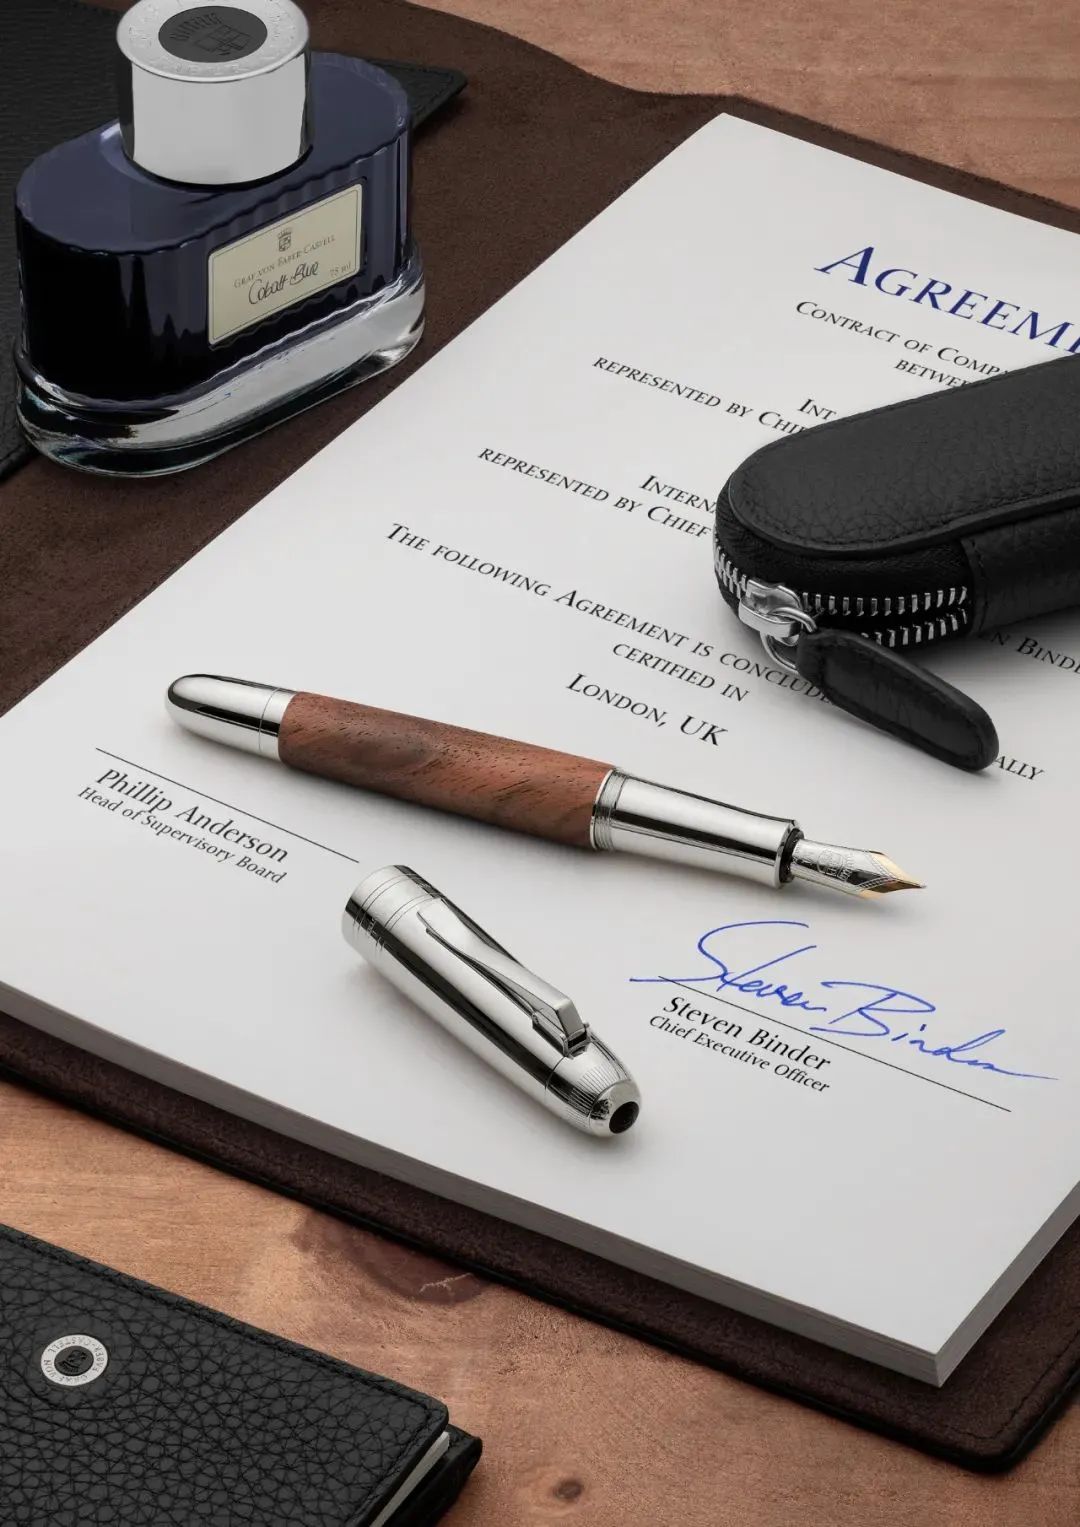 GRAF VON FABER-CASTELL
Cobalt Blue 75 ml
AGREEM
CONTRACT OF COMP
BETWE
INT
REPRESENTED BY CHI
INTERN
REPRESENTED BY CHIEF
EN BINDE
THE FOLLOWING AGREEMENT IS CONCLUDE
ALLY
CERTIFIED IN
LONDON, UK
Phillip Anderson
Head of Supervisory Board
Steven Binder
Steven Binder
Chief Executive Officer